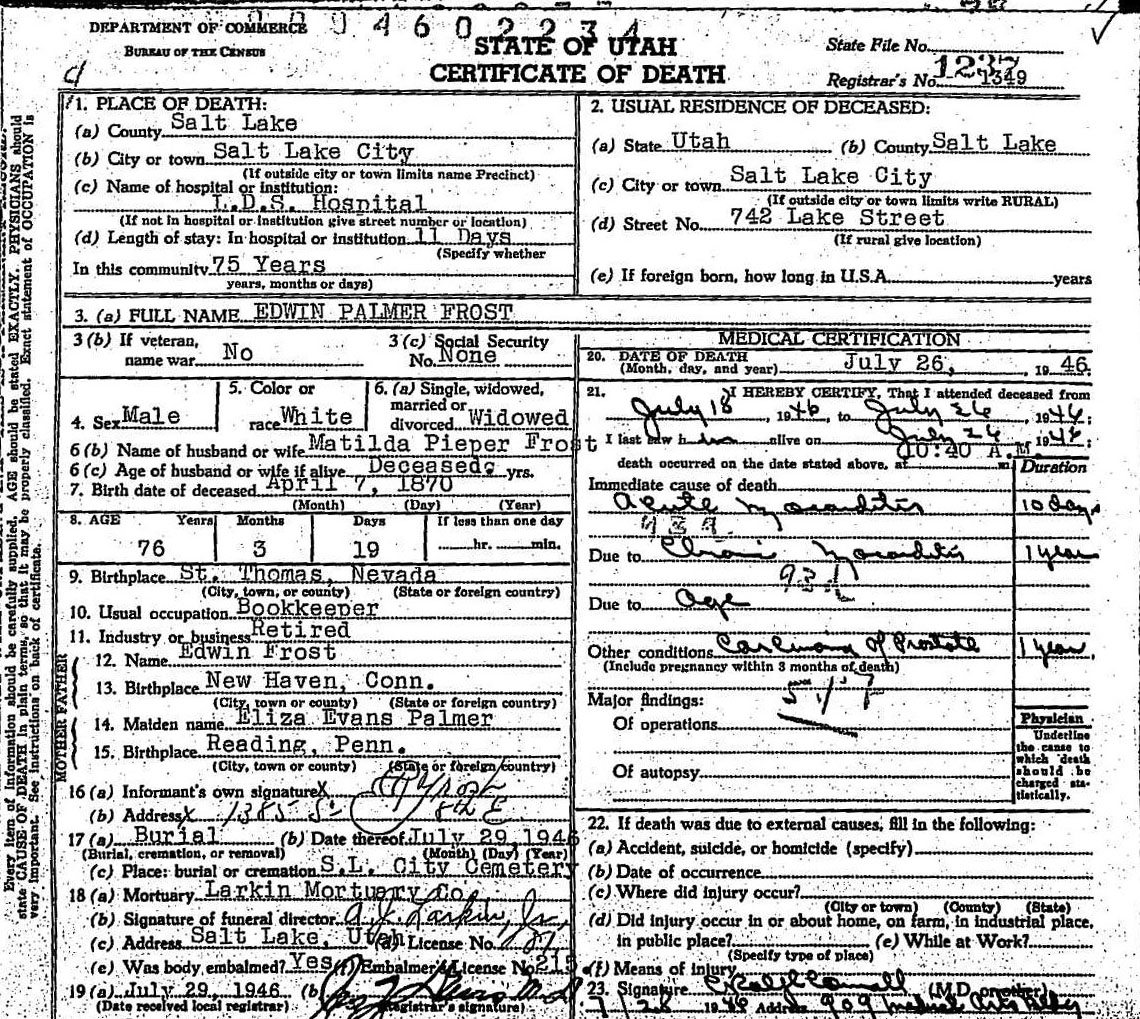 004602234
DEPARTMENT OF COMMERCE
BUREAU OF THE CENSUS
STATE OF UTAH
CERTIFICATE OF DEATH
State File No.
Registrar's No. 1349
1. PLACE OF DEATH:
(a) County Salt Lake
(b) City or town Salt Lake City
(If outside city or town limits name Precinct)
(c) Name of hospital or institution:
L.D.S. Hospital
(If not in hospital or institution give street number or location)
(d) Length of stay: In hospital or institution 11 Days
(Specify whether
In this community 75 Years
years, months or days)
2. USUAL RESIDENCE OF DECEASED:
(a) State Utah (b) County Salt Lake
(c) City or town Salt Lake City
(If outside city or town limits write RURAL)
(d) Street No. 742 Lake Street
(If rural give location)
(e) If foreign born, how long in U.S.A. years
3. (a) FULL NAME EDWIN PALMER FROST
3 (b) If veteran, name war No
3 (c) Social Security No. None
4. Sex Male
5. Color or race White
6. (a) Single, widowed, married or divorced Widowed
6 (b) Name of husband or wife Matilda Pieper Frost
6 (c) Age of husband or wife if alive Deceased yrs.
7. Birth date of deceased April 7, 1870
(Month) (Day) (Year)
8. AGE Years Months Days If less than one day
76 3 19 hr. min.
9. Birthplace St. Thomas, Nevada
(City, town, or county) (State or foreign country)
10. Usual occupation Bookkeeper
11. Industry or business Retired
FATHER
12. Name Edwin Frost
13. Birthplace New Haven, Conn.
(City, town or county) (State or foreign country)
MOTHER
14. Maiden name Eliza Evans Palmer
15. Birthplace Reading, Penn.
(City, town or county) (State or foreign country)
16 (a) Informant's own signature X
(b) Address X 1385 S 8th E
17 (a) Burial (b) Date thereof July 29, 1946
(Burial, cremation, or removal) (Month) (Day) (Year)
(c) Place: burial or cremation S.L. City Cemetery
18 (a) Mortuary Larkin Mortuary Co.
(b) Signature of funeral director A. J. Larkin, Jr.
(c) Address Salt Lake, Utah (d) License No.
(e) Was body embalmed? Yes (f) Embalmer's License No. 215
19 (a) July 29, 1946 (b)
(Date received local registrar) (Registrar's signature)
MEDICAL CERTIFICATION
20. DATE OF DEATH
(Month, day, and year) July 26, 1946.
21. I HEREBY CERTIFY, That I attended deceased from
July 18, 1946, to July 26, 1946;
I last saw him alive on July 26, 1946;
death occurred on the date stated above, at 10:40 A.M. m
Duration
Immediate cause of death
Acute Myocarditis 10 days
Due to Chronic Myocarditis 1 year
93d
Due to Age
Other conditions Carcinoma of Prostate 1 year
(Include pregnancy within 3 months of death)
Major findings:
Of operations
Of autopsy
Physician
Underline the cause to which death should be charged statistically.
22. If death was due to external causes, fill in the following:
(a) Accident, suicide, or homicide (specify)
(b) Date of occurrence
(c) Where did injury occur?
(City or town) (County) (State)
(d) Did injury occur in or about home, on farm, in industrial place,
in public place? (e) While at Work?
(Specify type of place)
(f) Means of injury
23. Signature (M.D. or other)
7/28 1946 Address 909 Medical Arts Bldg
Every item of information should be carefully supplied. AGE should be stated EXACTLY. PHYSICIANS should
state CAUSE OF DEATH in plain terms, so that it may be properly classified. Exact statement of OCCUPATION is
very important. See instructions on back of certificate.